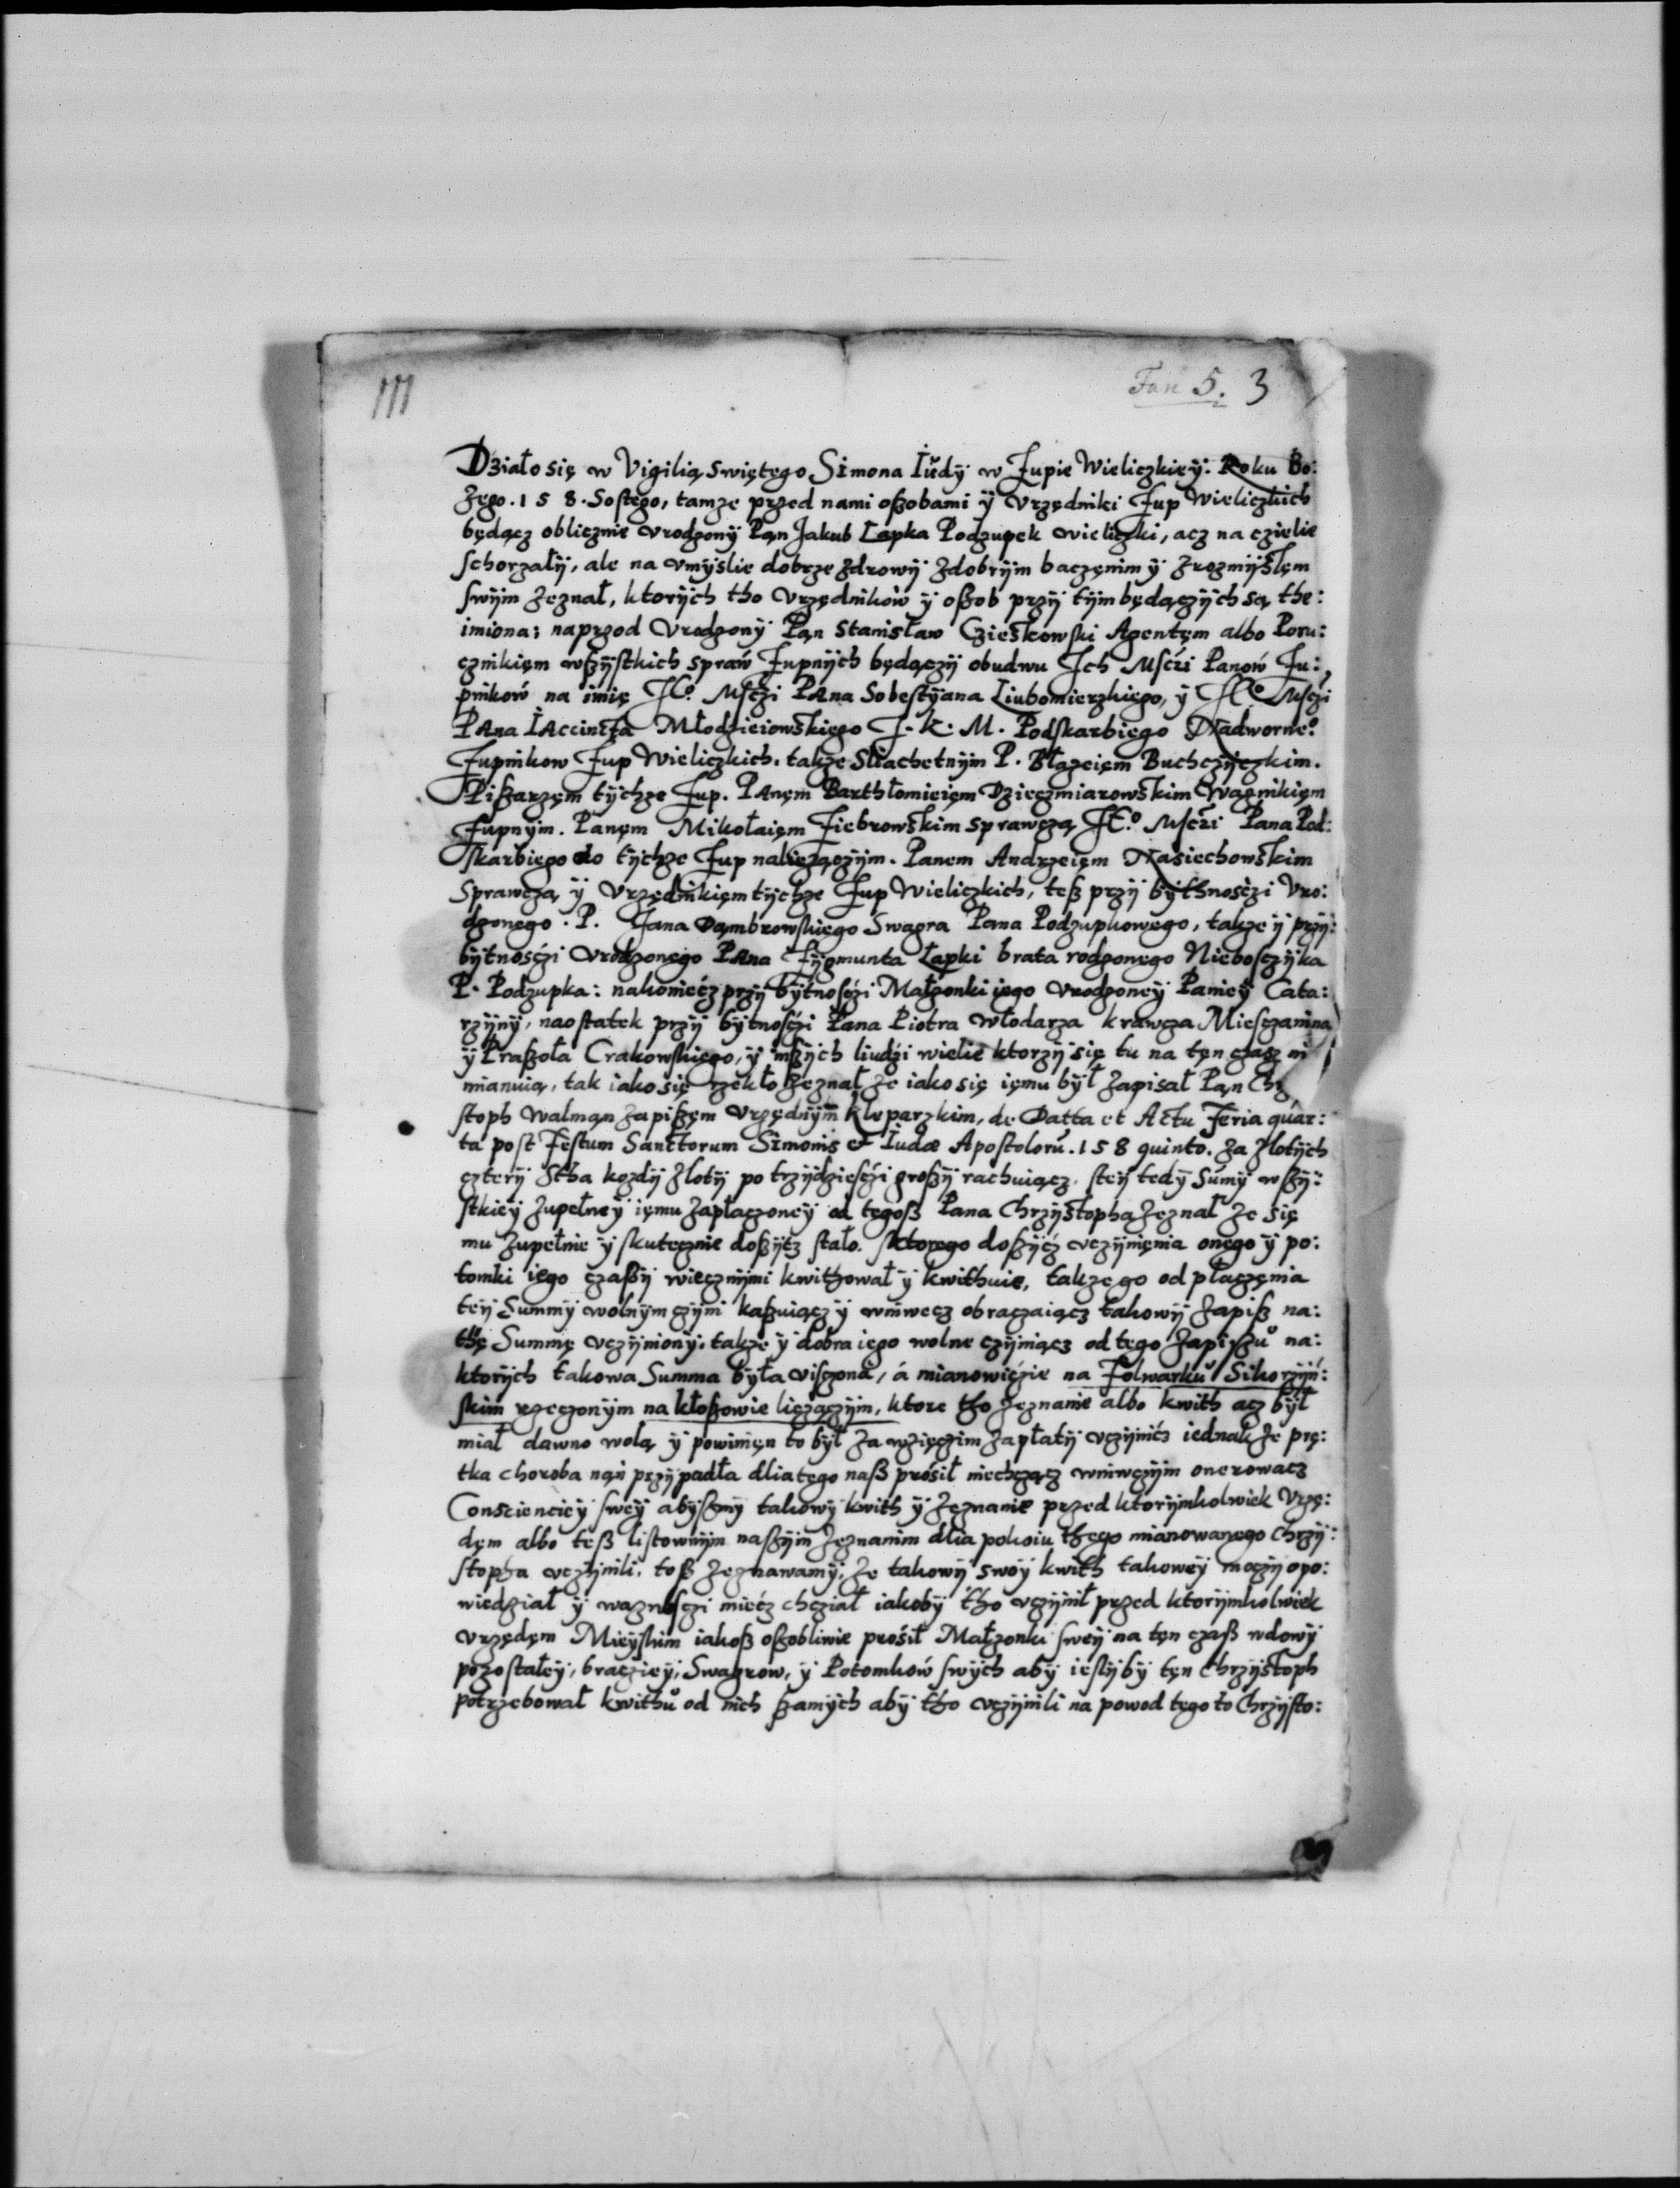 111
Fan 5. 3
Działo się w Vigilią swiętego Simona Iudÿ w Żupie Wieliczkieÿ. Roku Bo:
żego. 158. Sostego, tamże przed nami oszobami ÿ Vrzędniki Żup Wieliczkich
będącz oblicznie vrodzonÿ Pąn Jakub Łapka Podżupek wieliczki, acz na czielie
schorzałÿ, ale na vmÿslie dobrze zdrowÿ zdobrÿm baczęnim ÿ zrozmÿslęm
swÿm zeznał, ktorÿch tho Vrzędnikow ÿ oszob przÿ tÿm będączÿch są the:
imiona; naprzod Vrodzonÿ Pąn Stanisław Czieskowski Agentęm albo Poru:
cznikięm wszÿstkich spraw Żupnÿch będączÿ obudwu Jch Msczi Panow Żu:
pnikow na imię J.º Msczi PAna Sobestÿana Liubomierzkiego, ÿ J.º Msczi
PAna IAccincta Młodzieiowskiego J. K. M. Podskarbiego Nadworne.º
Żupnikow Żup Wieliczkich. takze Sliachetnÿm P. Błazeięm Buchczÿczkim.
Piszarzęm tÿchze Żup. PAnęm Barthłomieięm Dzieczmiarowskim Ważnikięm
Żupnÿm. Panęm Mikołaięm Fiebrowskim sprawczą J.º Msczi Pana Pod:
skarbiego do tÿchze Żup nalieżączÿm. Panem Andrzeięm Nasiechowskim
Sprawczą ÿ Vrzędnikięm tÿchze Żup Wieliczkich, tesz przÿ bÿthnosczi Vro:
dzonego. P. Jana Dąmbrowskiego Swagra Pana Podzupkowego, takze ÿ przÿ:
bÿtnosczi Vrodzonego PAna Zÿgmunta Łapki brata rodzonego Niebosczÿka
P. Podzupka: nakoniecz przÿ bÿtnosczi Małzonki iego Vrodzoneÿ Panieÿ Cata:
rzÿnÿ, naostatek przÿ bÿtnosczi Pana Piotra Włodarza krawcza Miesczanina
ÿ Praszoła Crakowskiego, ÿ inszÿch liudzi wielie ktorzÿ się tu na tęn czasz ni
mianuią, tak iako się rzekło zeznał że iako się ięmu bÿł zapisał Pąn Chrz
stoph Walmąn zapiszęm vrzędnÿm Kleparzkim, de Datta et Actu Feria quar:
ta post Festum Sanctorum Simonis et Iudæ Apostolorũ. 158 quinto. za złotÿch
czterÿ stha kozdÿ złotÿ po trzÿdziesczi groszÿ rachuiącz. steÿ tedÿ Sumÿ wszÿ:
stkieÿ zupełneÿ ięmu zapłaczoneÿ od tegosz Pana Chrzÿstopha zeznał że się
mu zupełnie ÿ skutecznie doszÿtz stało. sktorego doszÿcz vczÿnięnia onego ÿ po:
tomki iego czaszÿ wiecznÿmi kwithował ÿ kwithuie, takze go od płaczęnia
teÿ Summÿ wolnÿm czÿni kaszuiącz ÿ wniwecz obraczaiącz takowÿ zapisz na:
thę Summę vczÿnionÿ. takze ÿ dobra iego wolne czÿniącz od tego zapiszu na:
ktorÿch takowa Summa bÿła viszczona, á mianowiczie na Folwarku Sikorzÿń:
skim rzeczonÿm na kłoszowie lieżączÿm, ktore tho zeznanie albo kwith acz bÿł
miał dawno wolą ÿ powinięn to bÿł za wzięczim zapłatÿ vczÿnicz iednak że prę:
tka choroba nąn przÿpadła dliatego nasz prosił niechcząc wniwczÿm onerowacz
Conscienciey sweÿ abÿszmÿ takowÿ kwith ÿ zeznanie przed ktorÿmkolwiek Vrzę:
dęm albo tesz listownÿm naszÿm zeznanim dlia pokoiu thego mianowanego Chrzÿ:
stopha vczÿnili. tosz zeznawamÿ, że takowÿ swoÿ kwith takoweÿ moczÿ opo:
wiedział ÿ waznosczi miecz chcział iakobÿ tho vczÿnił przed ktorÿmkolwiek
vrzędęm Mieÿskim iakosz oszobliwie prosił Małzonki sweÿ na tęn czasz wdowÿ
pozostałeÿ, braczieÿ, Swagrow, ÿ Potomkow swÿch abÿ ieslÿbÿ tęn Chrzÿstoph
potrzebował kwithu od nich szamÿch abÿ tho vczÿnili na powod tego to Chrzÿsto: